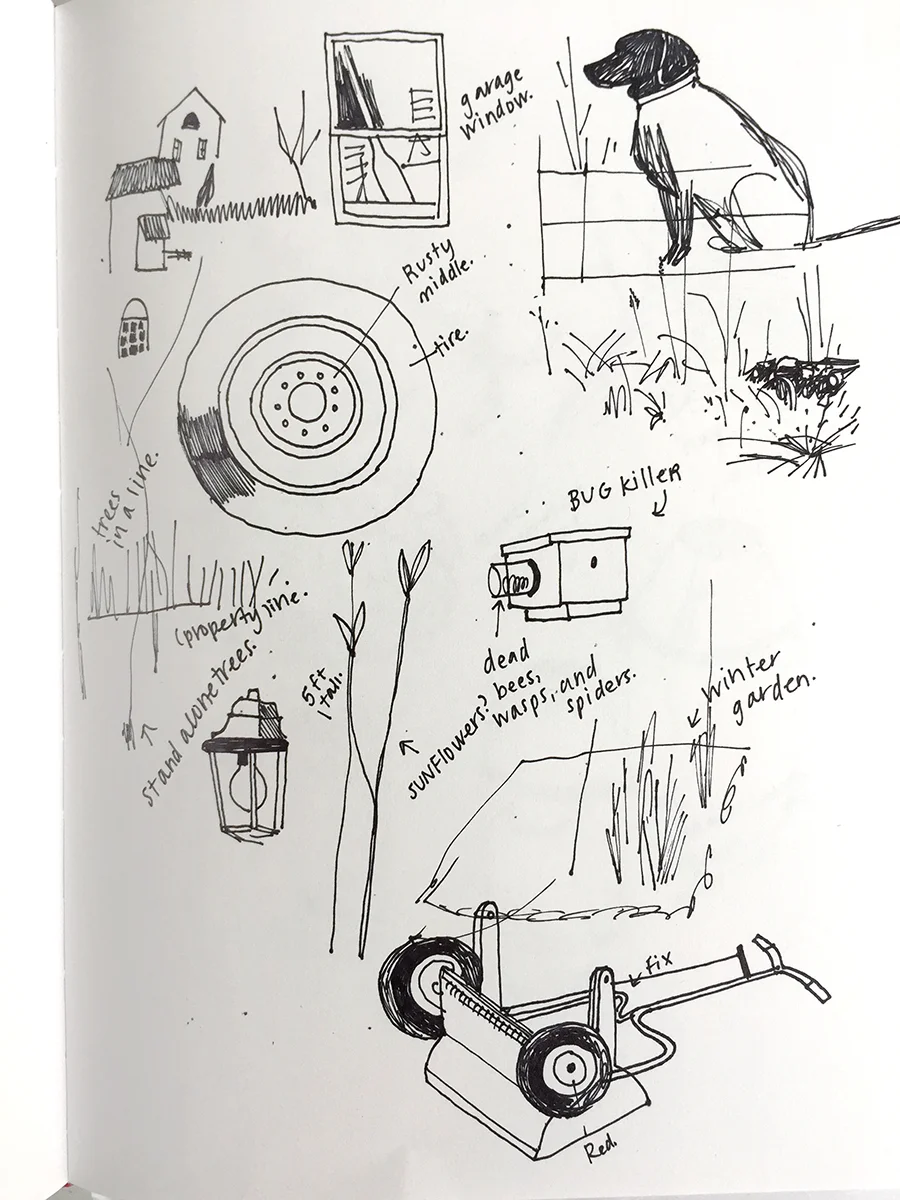 garage
window.
Rusty
middle.
tire.
trees
in a line.
(property line.
stand alone trees.
BUG Killer
dead
bees,
wasps, and
spiders.
5 ft
tall.
sunflowers?
winter
garden.
Fix
Red.